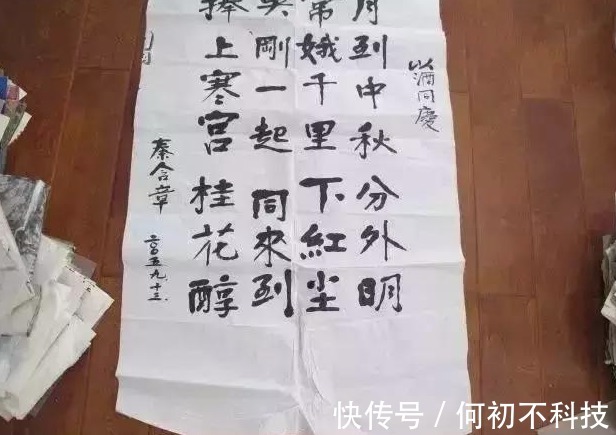 以酒同慶
月到中秋分外明
常娥千里下紅尘
吳剛一起同來到
捧上寒宫桂花醇
秦含章
二〇〇五九、十三.
快传号/何初不科技